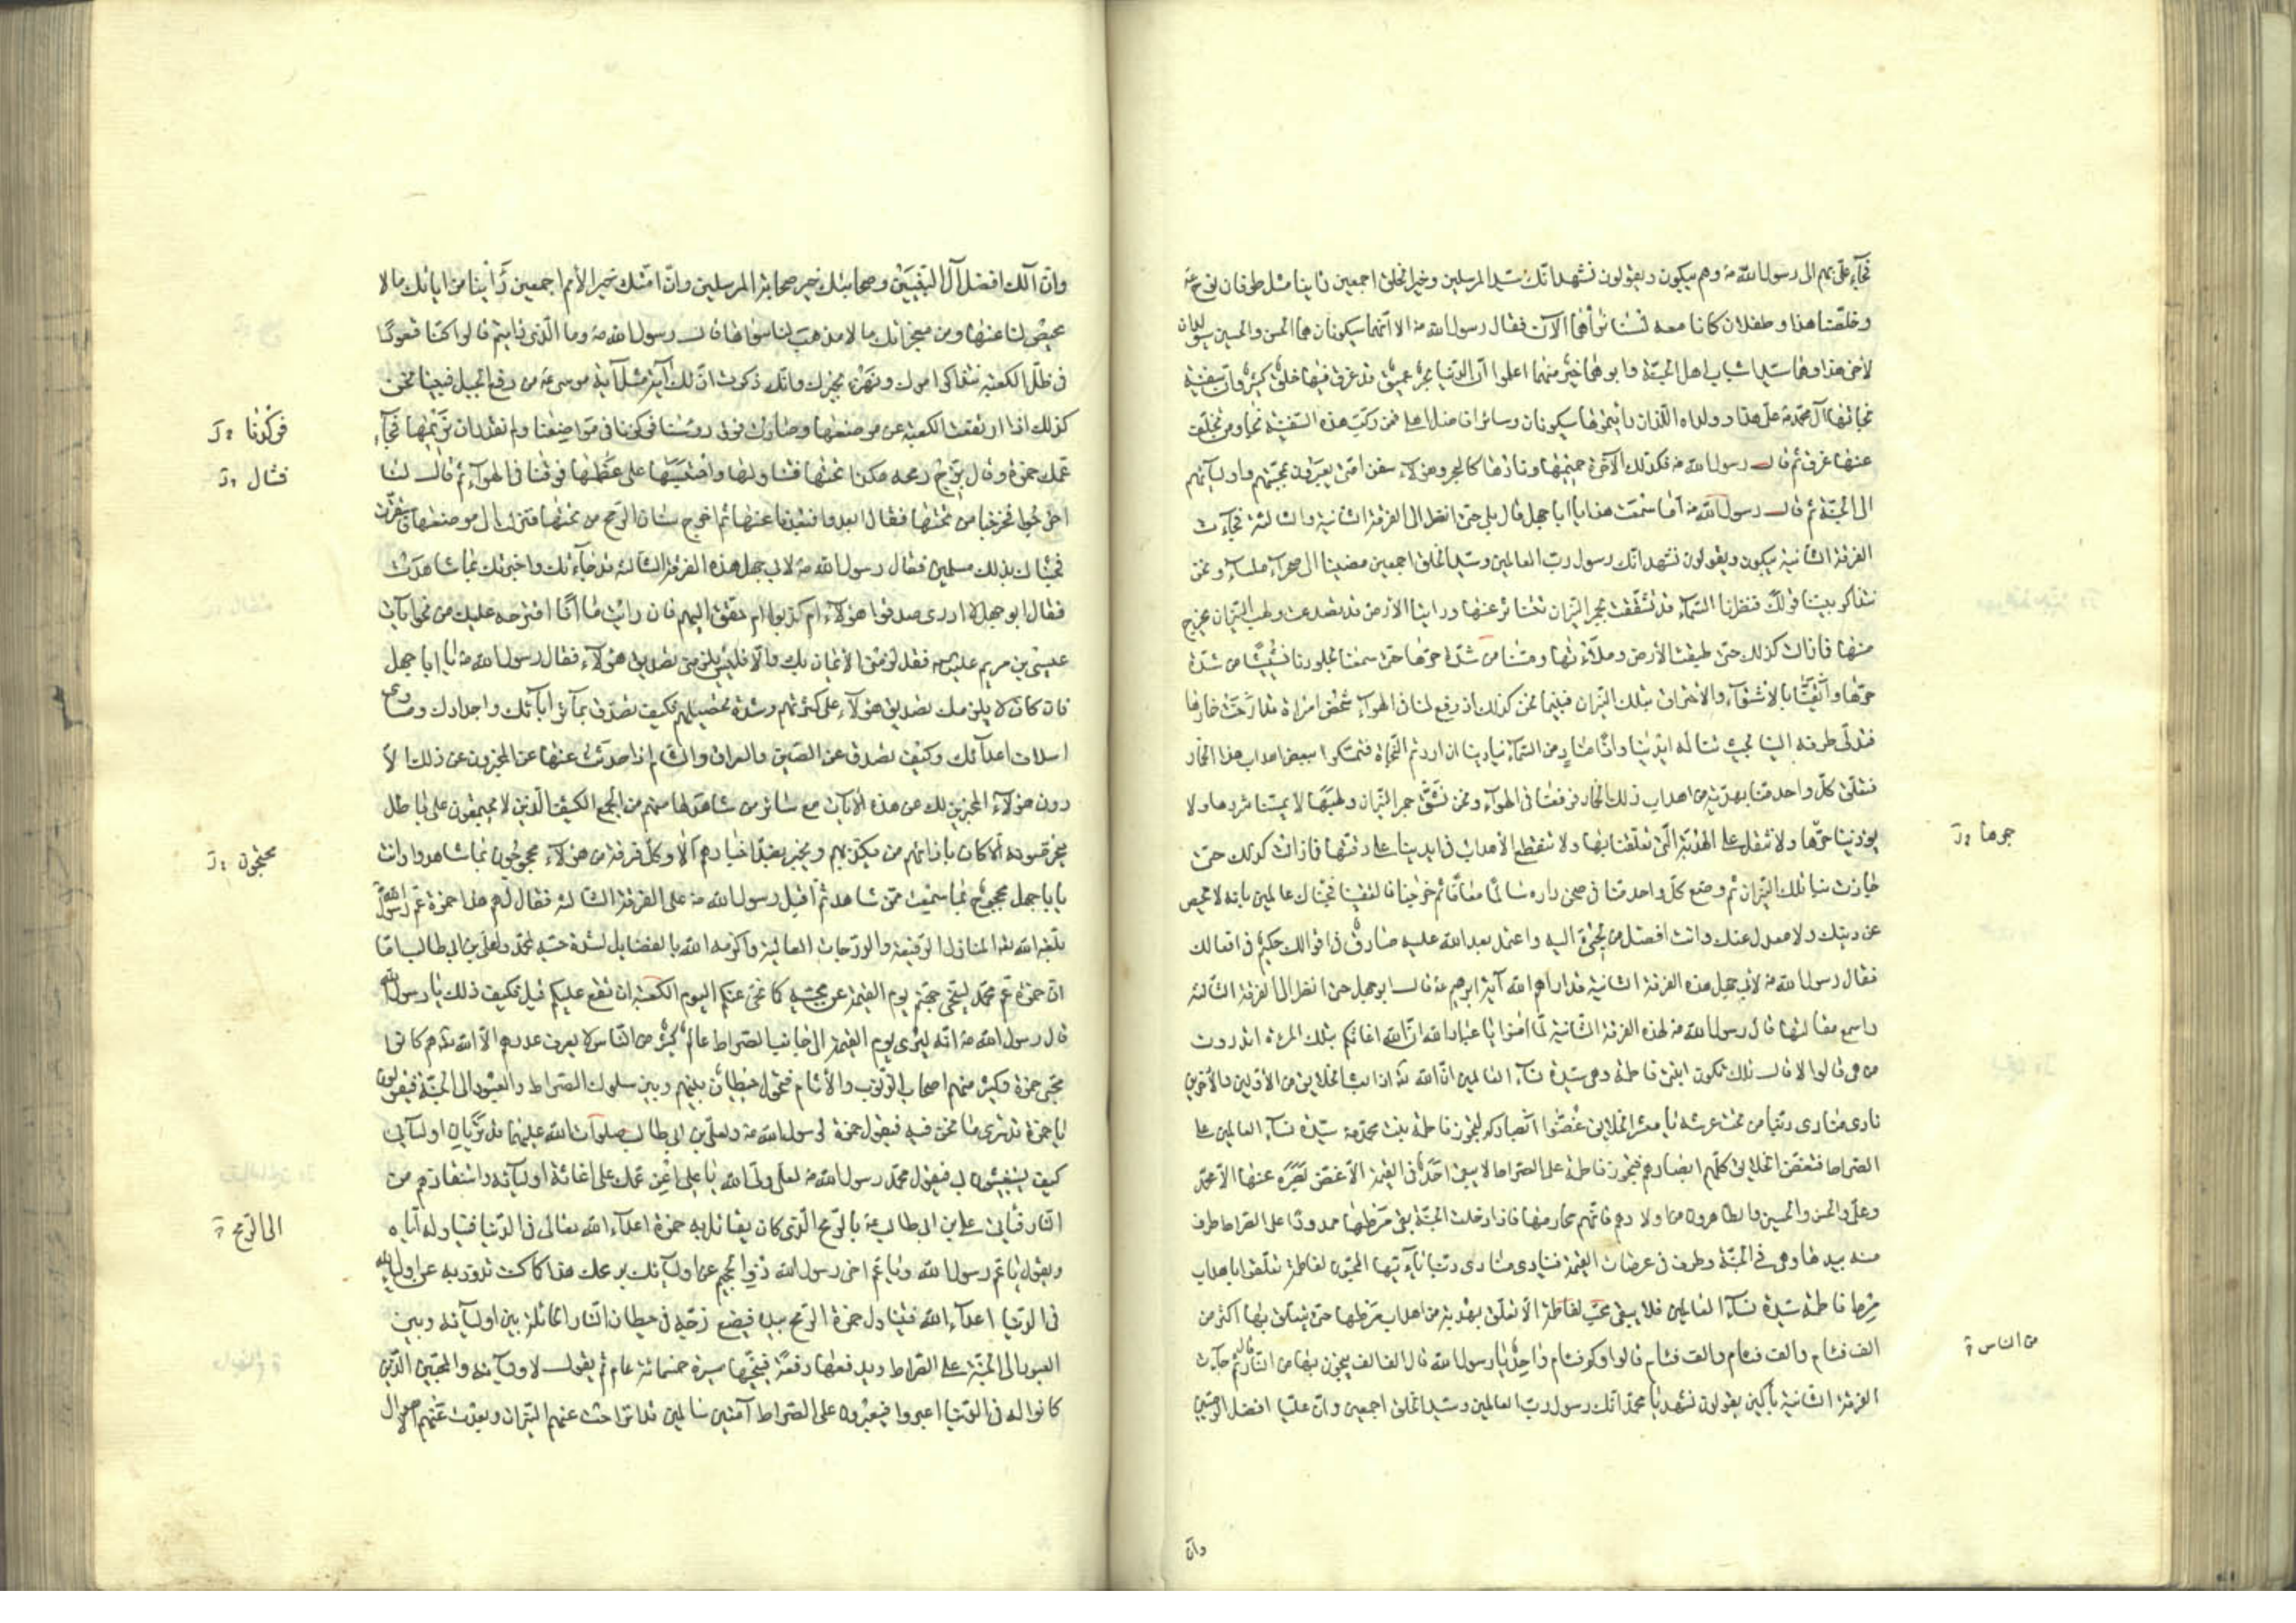 فجآءعليهم الى رسول الله ص وهم يبكون ويقولون نشهد انّك سيّد المرسلين وخير الخلق اجمعين راينا مثل طوفان نوح ع
وخلّصنا هذا وطفلان كانا معه لسنا نراهما الآن فقال رسول الله ص الا انّهما سيكونان هما الحسن والحسين سيولدان
لاخى هذا وهما سيّدا شباب اهل الجنّة وابوهما خير منهما اعلموا انّ الدّنيا بحر عميق قد غرق فيها خلق كثير وان سفينة
نجاتها آل محمّد ص علىّ هذا وولداه اللّذان رايتموهما سيكونان وسائر افاضل اهلى فمن ركب هذه السّفينة نجا ومن تخلّف
عنها غرق ثم قال رسول الله ص فكذلك الآخرة حميمها ونارها كالبحر وهؤلاء سفن امّتى يعبرون بمحبّيهم واوليآئهم
الى الجنّة ثم قال رسول الله ص أما سمعت هذا يا ابا جهل قال بلى حتى انظر الى الفرقة الثّانية والثالثة فجآءت
الفرقة الثّانية يبكون ويقولون نشهد انّك رسول ربّ العالمين وسيّد الخلق اجمعين مضينا الى صحراء ملسآء ونحن
نتذاكر بيننا قولك فنظرنا السّمآء قد تشقّقت بجمر النّيران تتناثر عنها وراينا الارض قد تصدعت ولهب النّيران يخرج
منها فما زالت كذلك حتى طبقت الأرض وملأتها ومسّنا من شدّة حرّها حتى سمعنا لجلودنا نشيشا من شدّة
حرّها وايقنّا بالاشتوآء والاحتراق بتلك النّيران فبينما نحن كذلك اذ رفع لنا فى الهوآء شخص امراة قد ارخت خمارها
فتدلّى طرفه الينا بحيث تناله ايدينا واذا مناد من السّمآء ينادينا ان اردتم النّجاة فتمسّكوا ببعض اهداب هذا الخمار
فتعلّق كلّ واحد منّا بهدبة من اهداب ذلك الخمار فرفعنا فى الهوآء ونحن نشقّ جمر النّيران ولهبها لا يمسّنا شررها ولا
يوذينا حرّها ولا نثقل على الهدبة الّتى تعلّقنا بها ولا تنقطع الأهداب فى ايدينا على دقّتها فما زالت كذلك حتى
جازت بنا تلك النّيران ثم وضع كلّ واحد منّا فى صحن داره سالما معافا ثم خرجنا فالتقينا فجئناك عالمين بانه لا محيص
عن دينك ولا معدل عنك وانت افضل من لجئ اليه واعتمد بعد الله عليه صادق فى اقوالك حكيم فى افعالك
فقال رسول الله ص لابى جهل هذه الفرقة الثانية قد اراهم الله آية ابرهيم ع قال ابو جهل حتى انظر الى الفرقة الثالثة
واسمع مقالتها قال رسول الله ص لهذه الفرقة الثّانية لمّا امنوا يا عباد الله انّ الله اغاثكم بتلك المرءة اتدرون
من هى قالوا لا قال تلك تكون ابنتى فاطمة وهى سيّدة نسآء العالمين انّ الله تع اذا بعث الخلايق من الأوّلين والآخرين
نادى منادى ربّنا من تحت عرشه يا معشر الخلايق غضّوا ابصاركم لتجوز فاطمة بنت محمّد ص سيّدة نسآء العالمين على
الصّراط فتغضّ الخلايق كلّهم ابصارهم فتجوز فاطمة على الصّراط لا يبقى احد فى القيمة الّا غضّ بصره عنها الّا محمّد
وعلى والحسن والحسين والطّاهرون من اولادهم فانّهم محارمها فاذا دخلت الجنّة بقى مرطها ممدودا على الصّراط طرف
منه بيدها وهى فى الجنّة وطرف فى عرصات القيمة فينادى منادى ربّنا يا ايّتها المحبّون لفاطمة تعلّقوا باهداب
مرط فاطمة سيّدة نسآء العالمين فلا يبقى محبّ لفاطمة الّا تعلّق بهدبة من اهداب مرطها حتى يتعلّق بها اكثر من
الف فئام والف فئام والف فئام قالوا وكم فئام واحد يا رسول الله قال الف الف ينجون بها من النّار قال ثم جآءت
الفرقة الثالثة باكين يقولون نشهد يا محمّد انّك رسول ربّ العالمين وسيّد الخلق اجمعين وانّ عليّا افضل الوصيّين
جمرها خ
من الناس خ
وان
وانّ آلك افضل آل النّبيّين وصحابتك خير صحابة المرسلين وانّ امّتك خير الأمم اجمعين رأينا من اياتك ما لا
محيص لنا عنها ومن معجزاتك ما لا مذهب لنا سواها قال رسول الله ص وما الّذى رايتم قالوا كنّا قعودا
فى ظلّ الكعبة نتذاكر امرك ونهزء بخبرك وانّك ذكرت انّ لك آية مثل آية موسى ع من رفع الجبل فبينا نحن
كذلك اذا ارتفعت الكعبة عن موضعها وصارت فوق رؤسنا فركزنا فى مواضعنا ولم نقدر ان نريمها فجآء
عمّك حمزة وقال بزج رمحه هكذا تحتها فتناولها واحتبسها على عظمها فوقنا فى الهوآء ثم قال لنا
اخرجوا فخرجنا من تحتها فقال ابعدوا فبعدنا عنها ثم اخرج سنان الرّمح من تحتها فنزلت الى موضعها واستقرّت
فجئناك بذلك مسلمين فقال رسول الله ص لابى جهل هذه الفرقة الثالثة قد جآءتك واخبرتك بما شاهدت
فقال ابو جهل لا ادرى صدقوا هؤلآء ام كذبوا ام حقّق اليهم فان رايت ما انا اقترحه عليك من نحو آيات
عيسى بن مريم عليهما السلام فقد لزمنى الأيمان بك والّا فليس يلزمنى تصديق هؤلآء فقال رسول الله ص يا ابا جهل
فان كان لا يلزمك تصديق هؤلآء على كثرتهم وشدّة تحصيلهم فكيف تصدّق بمآثر آبآئك واجدادك ومساوى
اسلاف اعدآئك وكيف تصدق عن الصّين والعراق والشام اذا حدّثت عنها هل المخبرون عن ذلك الّا
دون هؤلآء المخبرين لك عن هذه الآيات مع سائر من شاهدها منهم من الجمع الكثيف الّذين لا يجتمعون على باطل
يتخرّصونه الّا كان بازائهم من يكذّبهم ويخبر بضدّ اخبارهم ألا وكلّ فرقة من هؤلآء محجوجون بما شاهدوا وانت
يا ابا جهل محجوج بما سمعت ممّن شاهد ثم اقبل رسول الله ص على الفرقة الثالثة فقال لهم هذا حمزة عمّ رسول الله
بلّغه الله تع المنازل الرّفيعة والدّرجات العالية واكرمه الله بالفضايل لشدّة حبّه لمحمّد ولعلى بن ابى طالب اما
انّ حمزة عمّ محمّد لينحّى جهنّم يوم القيمة عن محبّيه كما نحّى عنكم اليوم الكعبة ان تقع عليكم قيل وكيف ذلك يا رسول الله
قال رسول الله ص انّه ليرى يوم القيمة الى جانب الصّراط عالم كثير من النّاس لا يعرف عددهم الّا الله تع هم كانوا
محبّى حمزة وكثير منهم اصحاب الذّنوب والآثام فتحول حيطان بينهم وبين سلوك الصّراط والعبور الى الجنّة فيقولون
يا حمزة قد ترى ما نحن فيه فيقول حمزة لرسول الله ص ولعلى بن ابى طالب صلوات الله عليهما قد تريان اوليآئى
كيف يستغيثون بى فيقول محمّد رسول الله ص لعلى ولىّ الله يا على اعن عمّك على اغاثة اوليآئه واستنقاذهم من
النّار فيأتى على بن ابى طالب ع بالرّمح الّذى كان يقاتل به حمزة اعدآء الله تعالى فى الدّنيا فيناوله ايّاه
ويقول يا عمّ رسول الله ويا عمّ اخى رسول الله ذد الجحيم عن اوليآئك برمحك هذا كما كنت تذود به عن اوليآء الله
فى الدّنيا اعدآء الله فيتناول حمزة الرّمح بيده فيضع زجّه فى حيطان النّار الحائلة بين اوليآئه وبين
العبور الى الجنّة على الصّراط ويدفعها دفعة فينحّيها مسيرة خمسمائة عام ثم يقول لاوليآئه والمحبّين الّذين
كانوا له فى الدّنيا اعبروا فيعبرون على الصّراط آمنين سالمين قد انزاحت عنهم النّيران وبعدت عنهم الأهوال
فركدنا خ
فشال خ
محجّون خ
الى الرّمح خ